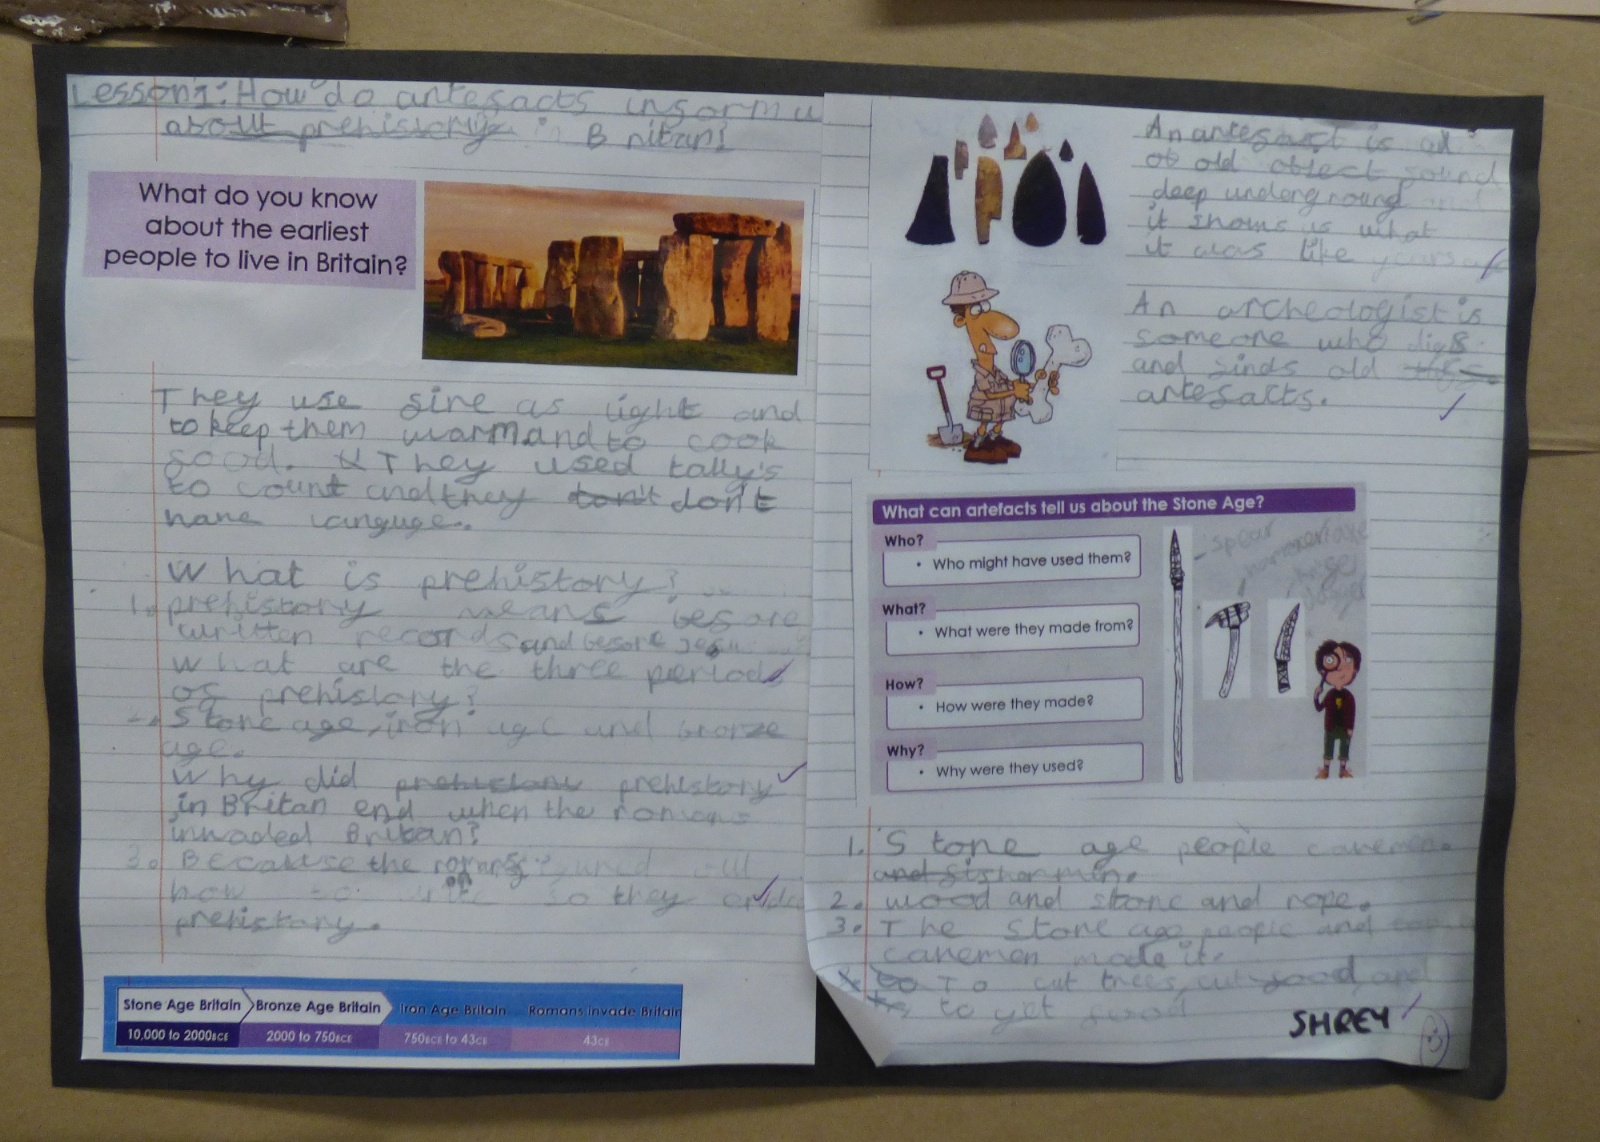 Lesson 1: How do artefacts inform u
about prehistory in Britan?
What do you know
about the earliest
people to live in Britain?
They use fire as light and
to keep them warm and to cook
food. They used tally's
to count and they don't
have languge.
What is prehistory?
1. prehistory means before
written records and before
What are the three periods
of prehistory?
2. Stone age, iron age and bronze
age.
Why did prehistory
in Britan end when the romans
invaded Britan?
3. Because the romans
how to write so they
prehistory.
Stone Age Britain
Bronze Age Britain
Iron Age Britain
Romans invade Britain
10,000 to 2000BCE
2000 to 750BCE
750BCE to 43CE
43CE
An artefact is an
of old object found
deep underground and
it shows us what
it was like years
An archeologist is
someone who digs
and finds old
artefacts.
What can artefacts tell us about the Stone Age?
Who?
• Who might have used them?
What?
• What were they made from?
How?
• How were they made?
Why?
• Why were they used?
spear
1. Stone age people cavemen
and fishermin.
2. wood and stone and rope.
3. The Stone age people and
cavemen made it.
To cut trees, cut food, and
to get food
SHREY